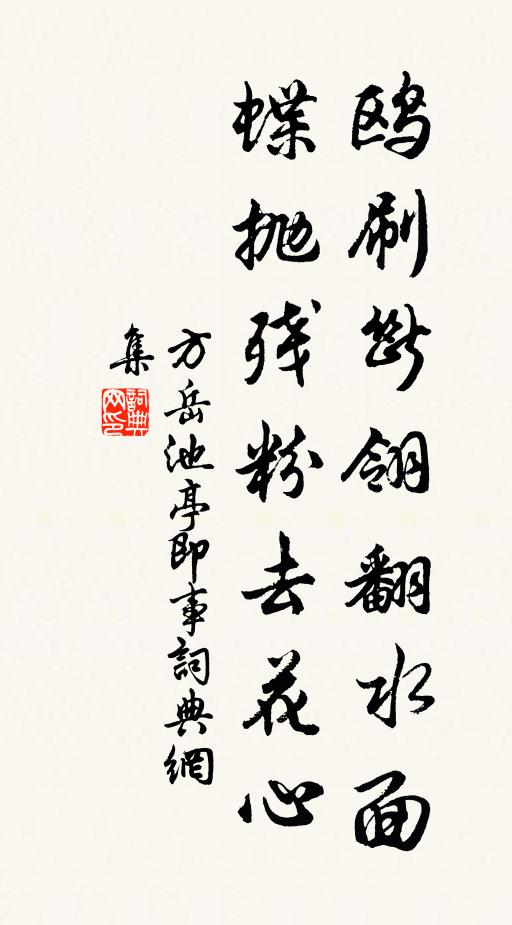 鸥刷断翎翻水面
蝶抛残粉去花心
方岳池亭即事詞典網
集
詞典
网印